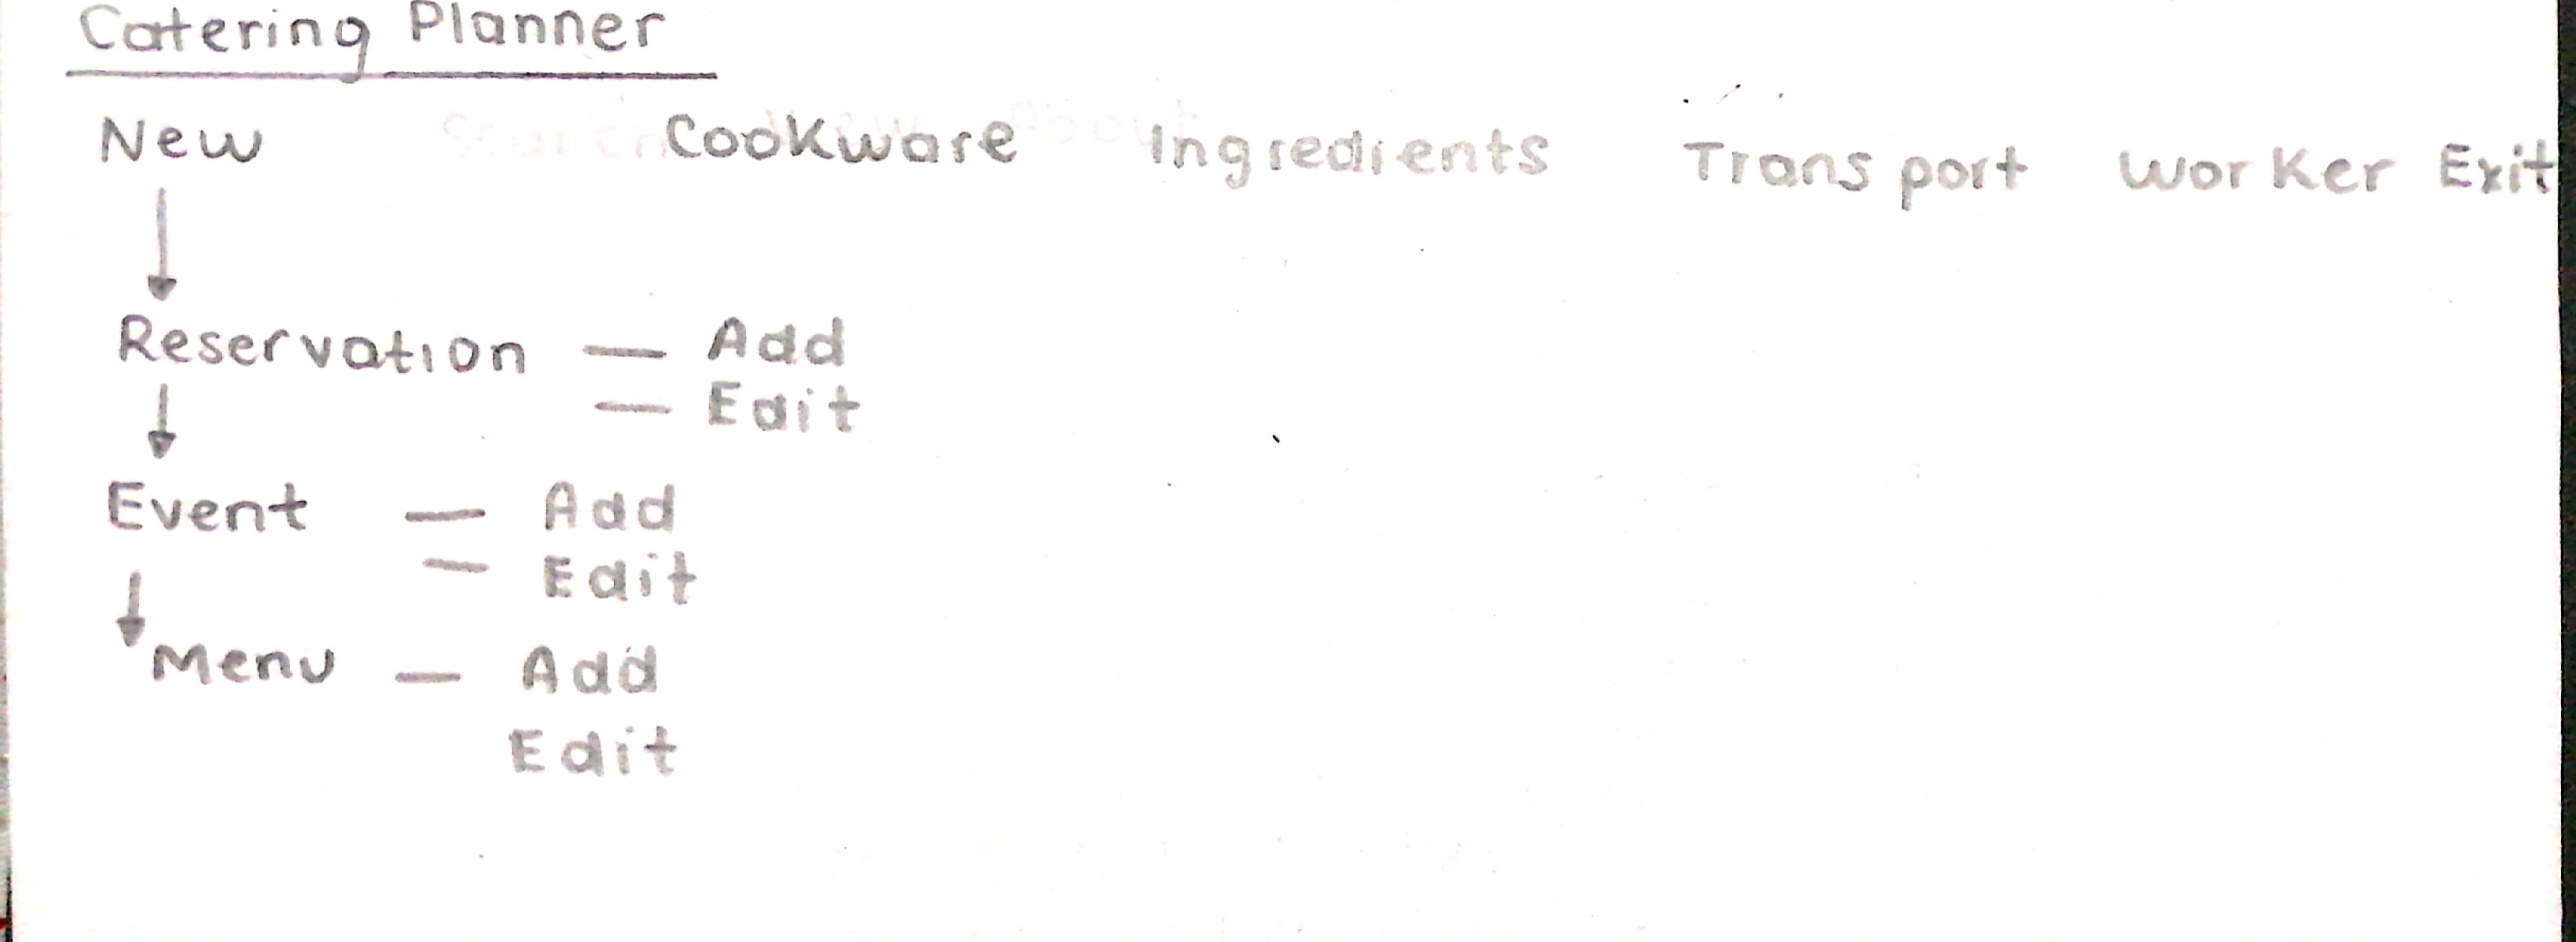 Catering Planner
New Cookware Ingredients Transport Worker Exit
Reservation — Add
— Edit
Event — Add
— Edit
Menu — Add
Edit